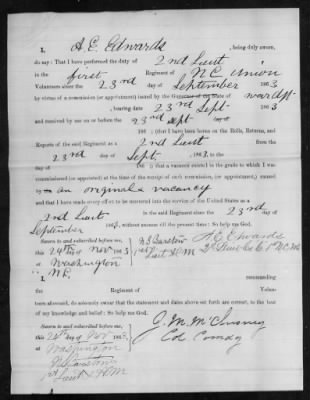 I, A. E. Edwards, being duly sworn,
do say: That I have performed the duty of 2nd Lieut
in the first Regiment of N C Union
Volunteers since the 23rd day of September 1863
by virtue of a commission (or appointment) issued by the war dept
, bearing date 23rd Sept 1863
and received by me on or before the 23rd day of Sept
186 ; (that I have been borne on the Rolls, Returns, and
Reports of the said Regiment as a 2nd Lieut from the
23rd day of Sept, 1863, to the
186 ;) that a vacancy existed in the grade to which I was
commissioned (or appointed) at the time of receipt of such commission, (or appointment,) caused
by an original vacancy
and that I have made every effort to be mustered into the service of the United States as a
2nd Lieut in the said Regiment since the 23rd day of
September 1863, without success till the present time: So help me God.
Sworn to and subscribed before me,
this 24th day of Nov 1863
at Washington
N.C.
1st Lieut & A M
A E Edwards
2nd Lieut Co C 1st N.C. Vols
I, commanding
the Regiment of Volun-
teers aforesaid, do solemnly swear that the statement and dates above set forth are correct, to the
best of my knowledge and belief: So help me God.
Sworn to and subscribed before me,
this 24th day of Nov 1863
at Washington
1st Lieut & A M
J. M. McChesney
Col Comdg